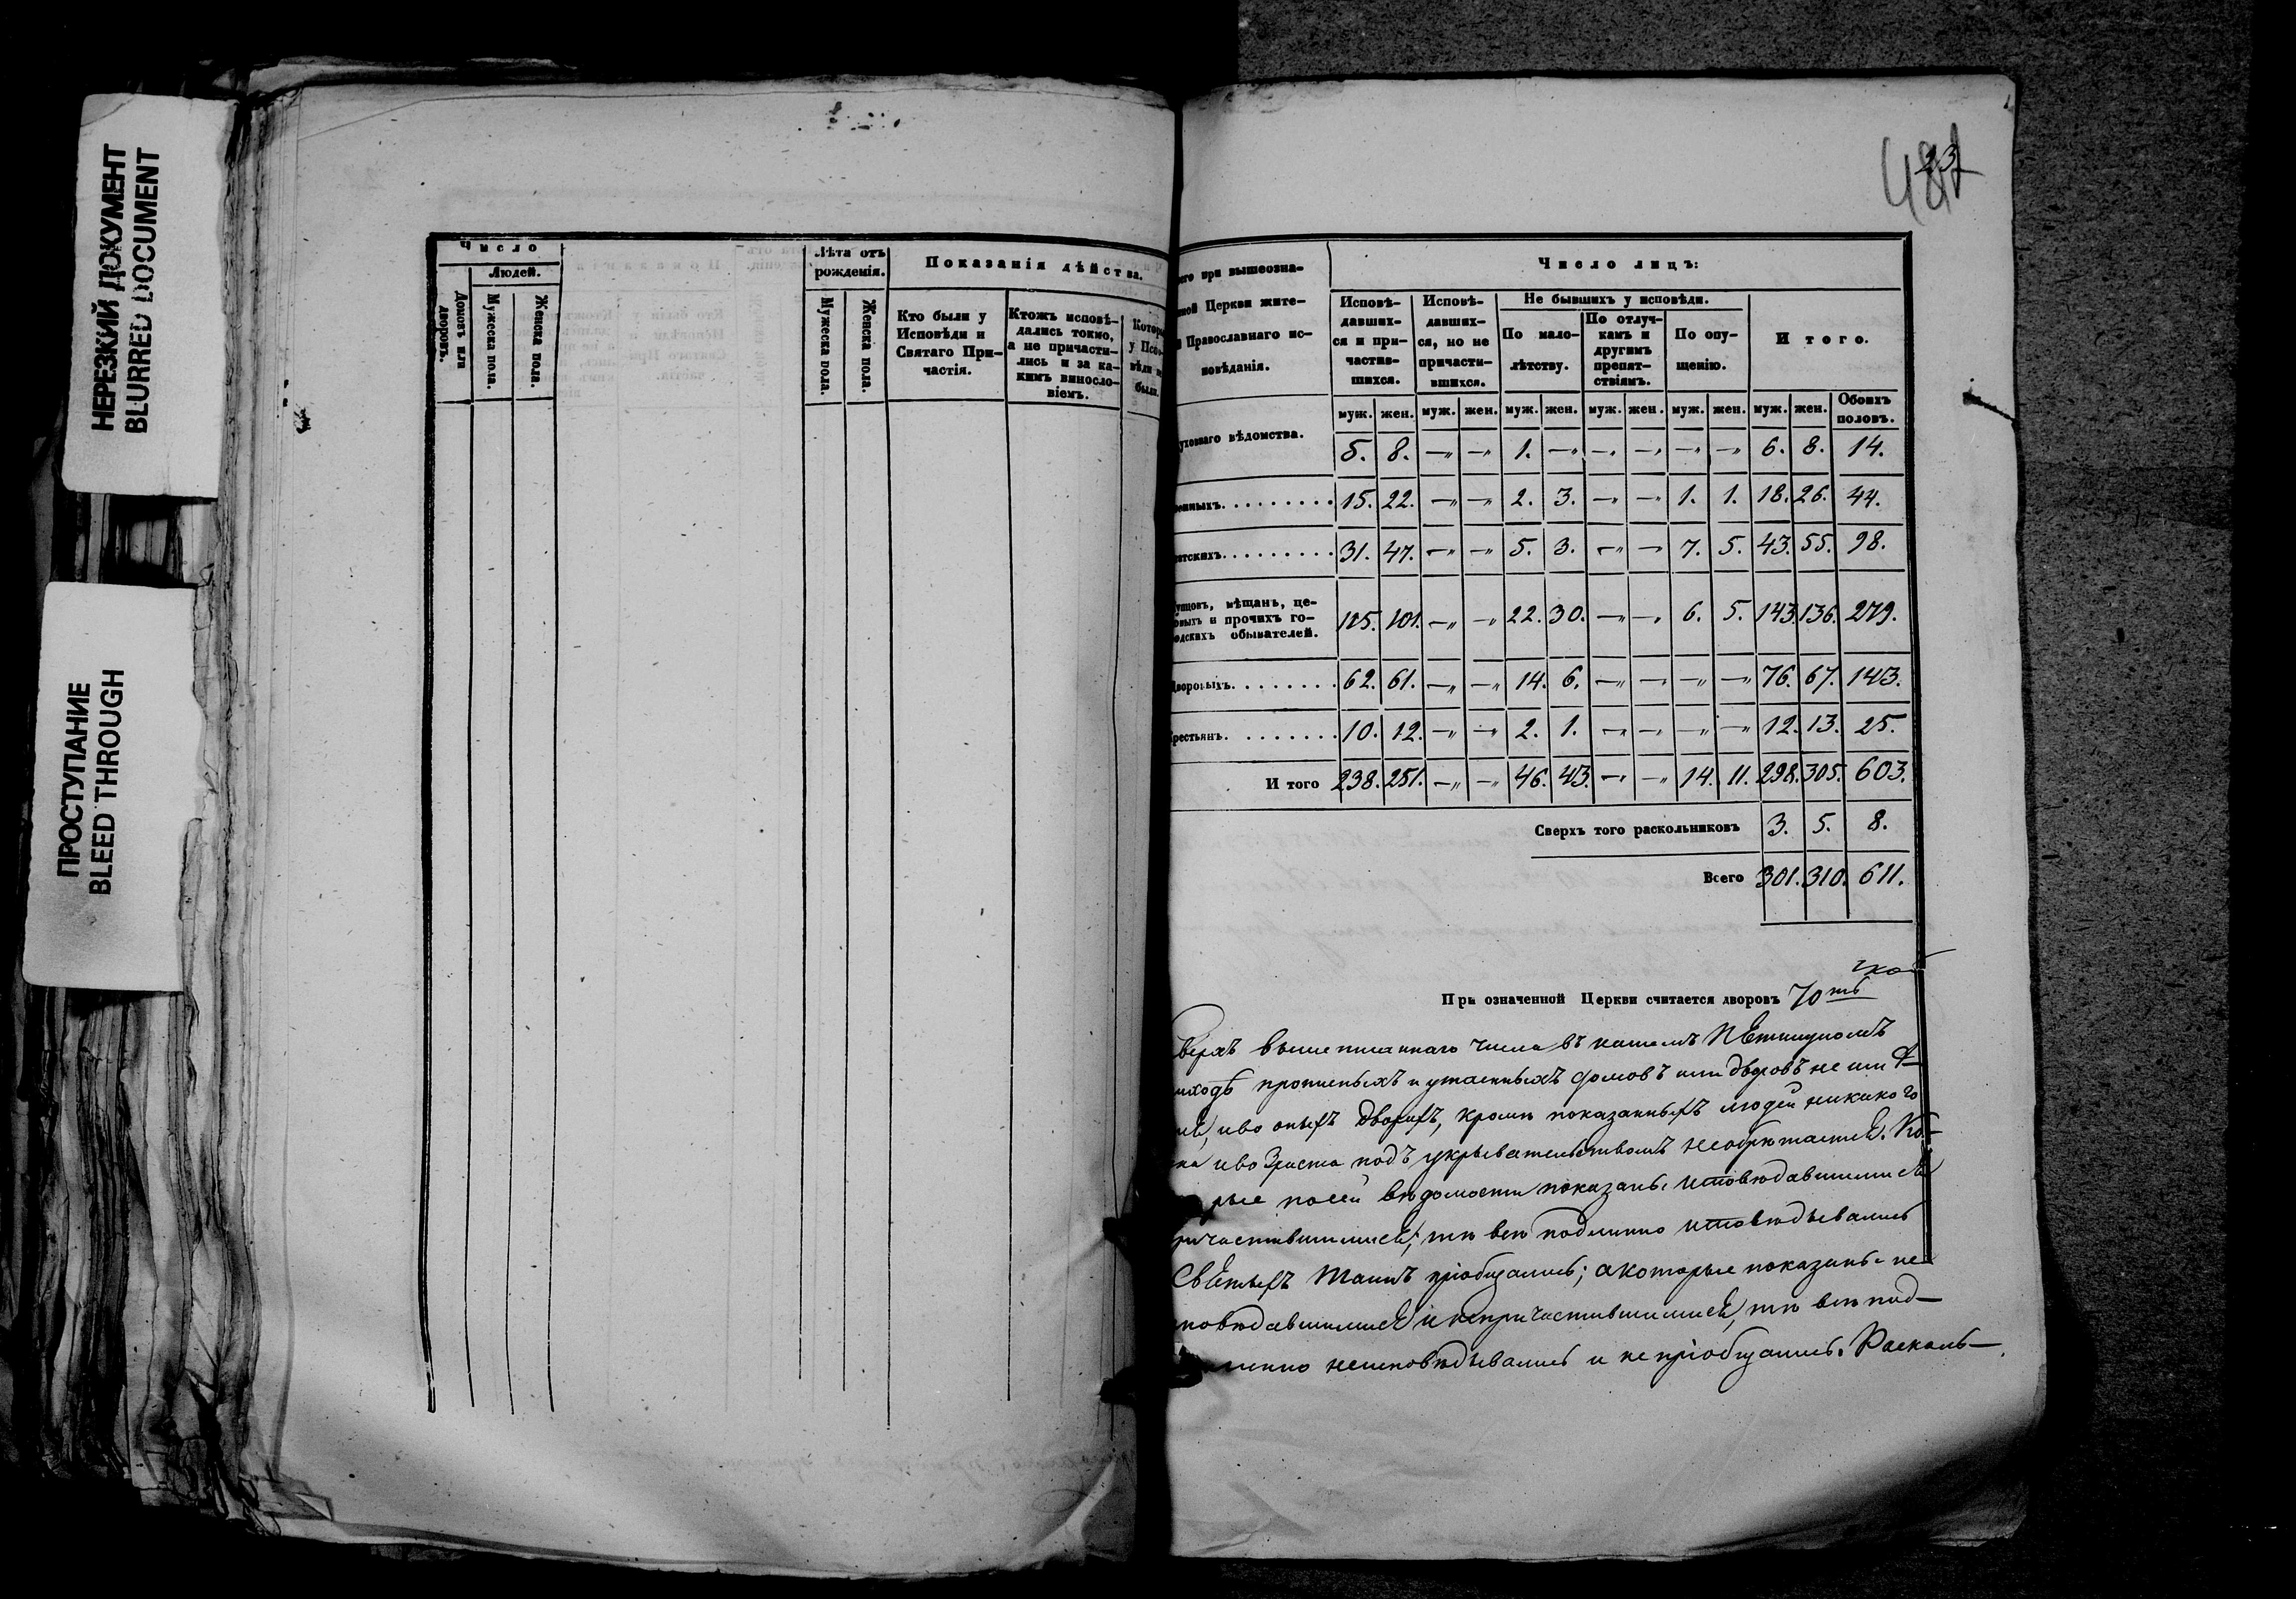 НЕРЕЗКИЙ ДОКУМЕНТ
BLURRED DOCUMENT
ПРОСТУПАНИЕ
BLEED THROUGH
Число
Людей.
Домовъ или дворовъ.
Мужеска пола.
Женска пола.
Лѣта отъ рожденія.
Мужеска пола.
Женска пола.
Показанія дѣйства.
Кто были у
Исповѣди и
Святаго При-
частія.
Ктожъ исповѣ-
дались токмо,
а не причасти-
лись и за ка-
кимъ винсло-
віемъ.
Котор
у Испо
вѣди н
были.
его при вышеозна-
ной Церкви жите-
Православнаго ис-
повѣданія.
Число лицъ:
Исповѣ-
давших-
ся и при-
частив-
шихся.
Исповѣ-
давших-
ся, но не
причасти-
вшихся.
Не бывшихъ у исповѣди.
По мало-
лѣтству.
По отлуч-
камъ и
другимъ
препят-
ствіямъ.
По опу-
щенію.
Итого.
муж. жен. муж. жен. муж. жен. муж. жен. муж. жен. муж. жен. Обоихъ половъ.
уховнаго вѣдомства. 5. 8. —„ —„ 1. —„ —„ —„ —„ —„ 6. 8. 14.
енныхъ......... 15. 22. —„ —„ 2. 3. —„ —„ 1. 1. 18. 26. 44.
атскихъ......... 31. 47. —„ —„ 5. 3. —„ —„ 7. 5. 43. 55. 98.
упцовъ, мѣщанъ, це-
овыхъ и прочихъ го-
одскихъ обывателей. 115. 101. —„ —„ 22. 30. —„ —„ 6. 5. 143. 136. 279.
Дворовыхъ........ 62. 61. —„ —„ 14. 6. —„ —„ —„ —„ 76. 67. 143.
рестьянъ........ 10. 12. —„ —„ 2. 1. —„ —„ —„ —„ 12. 13. 25.
И того 238. 251. —„ —„ 46. 43. —„ —„ 14. 11. 298. 305. 603.
Сверхъ того раскольниковъ 3. 5. 8.
Всего 301. 310. 611.
При означенной Церкви считается дворовъ 70ть
верхъ вышеписаннаго числа въ нашемъ
иходѣ прописныхъ и утаенныхъ домовъ или дворовъ не имѣ-
, и во оныхъ дворахъ, кромѣ показанныхъ людей никакого
и возраста подъ укрывательствомъ необрѣтается. Ко-
рые по сей вѣдомости показаны исповѣдавшимися
ричастившимися, тѣ всѣ подлинно исповѣдывались
Святыхъ Таинъ пріобщались; а которые показаны не
повѣдавшимися и непричастившимися, тѣ всѣ под-
линно неисповѣдывались и не пріобщались. Расколь-